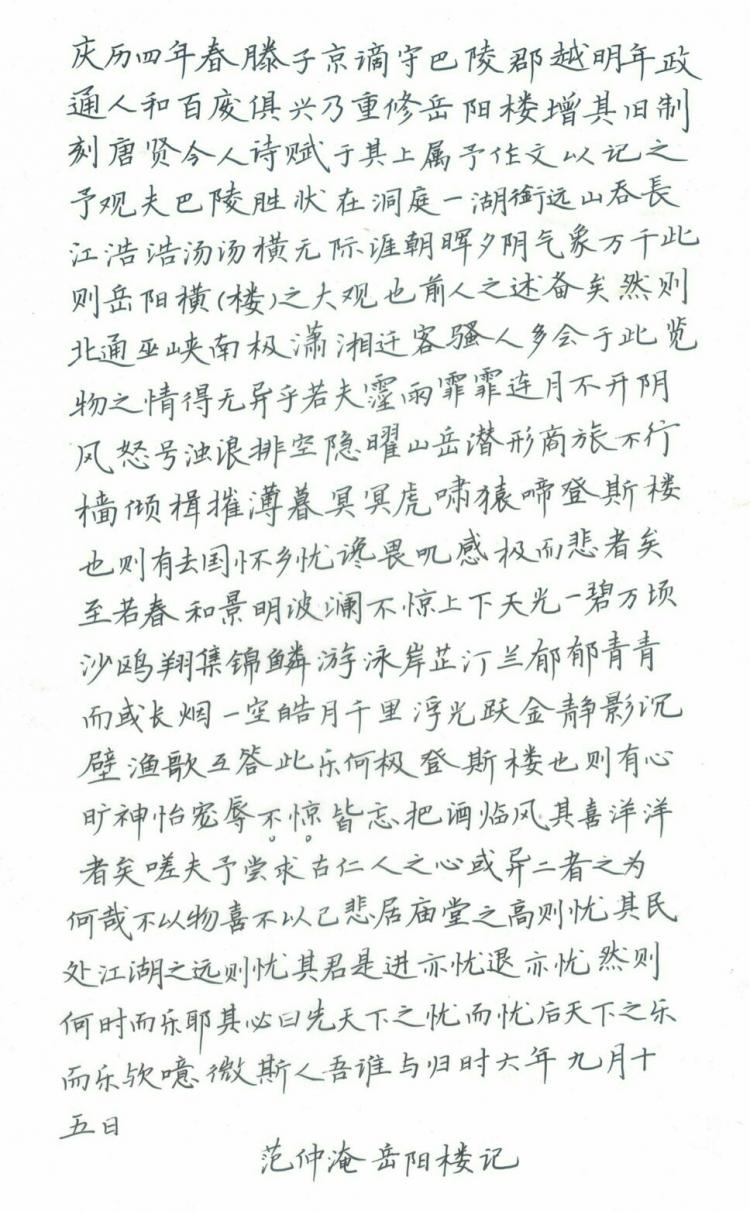 庆历四年春滕子京谪守巴陵郡越明年政
通人和百废俱兴乃重修岳阳楼增其旧制
刻唐贤今人诗赋于其上属予作文以记之
予观夫巴陵胜状在洞庭一湖衔远山吞長
江浩浩汤汤横无际涯朝晖夕阴气象万千此
则岳阳横(楼)之大观也前人之述备矣然则
北通巫峡南极潇湘迁客骚人多会于此览
物之情得无异乎若夫霪雨霏霏连月不开阴
风怒号浊浪排空隐曜山岳潜形商旅不行
樯倾楫摧薄暮冥冥虎啸猿啼登斯楼
也则有去国怀乡忧谗畏讥感极而悲者矣
至若春和景明波澜不惊上下天光一碧万顷
沙鸥翔集锦鳞游泳岸芷汀兰郁郁青青
而或长烟一空皓月千里浮光跃金静影沉
壁渔歌互答此乐何极登斯楼也则有心
旷神怡宠辱不惊皆忘把酒临风其喜洋洋
者矣嗟夫予尝求古仁人之心或异二者之为
何哉不以物喜不以己悲居庙堂之高则忧其民
处江湖之远则忧其君是进亦忧退亦忧然则
何时而乐耶其必曰先天下之忧而忧后天下之乐
而乐欤噫微斯人吾谁与归时六年九月十
五日
范仲淹岳阳楼记